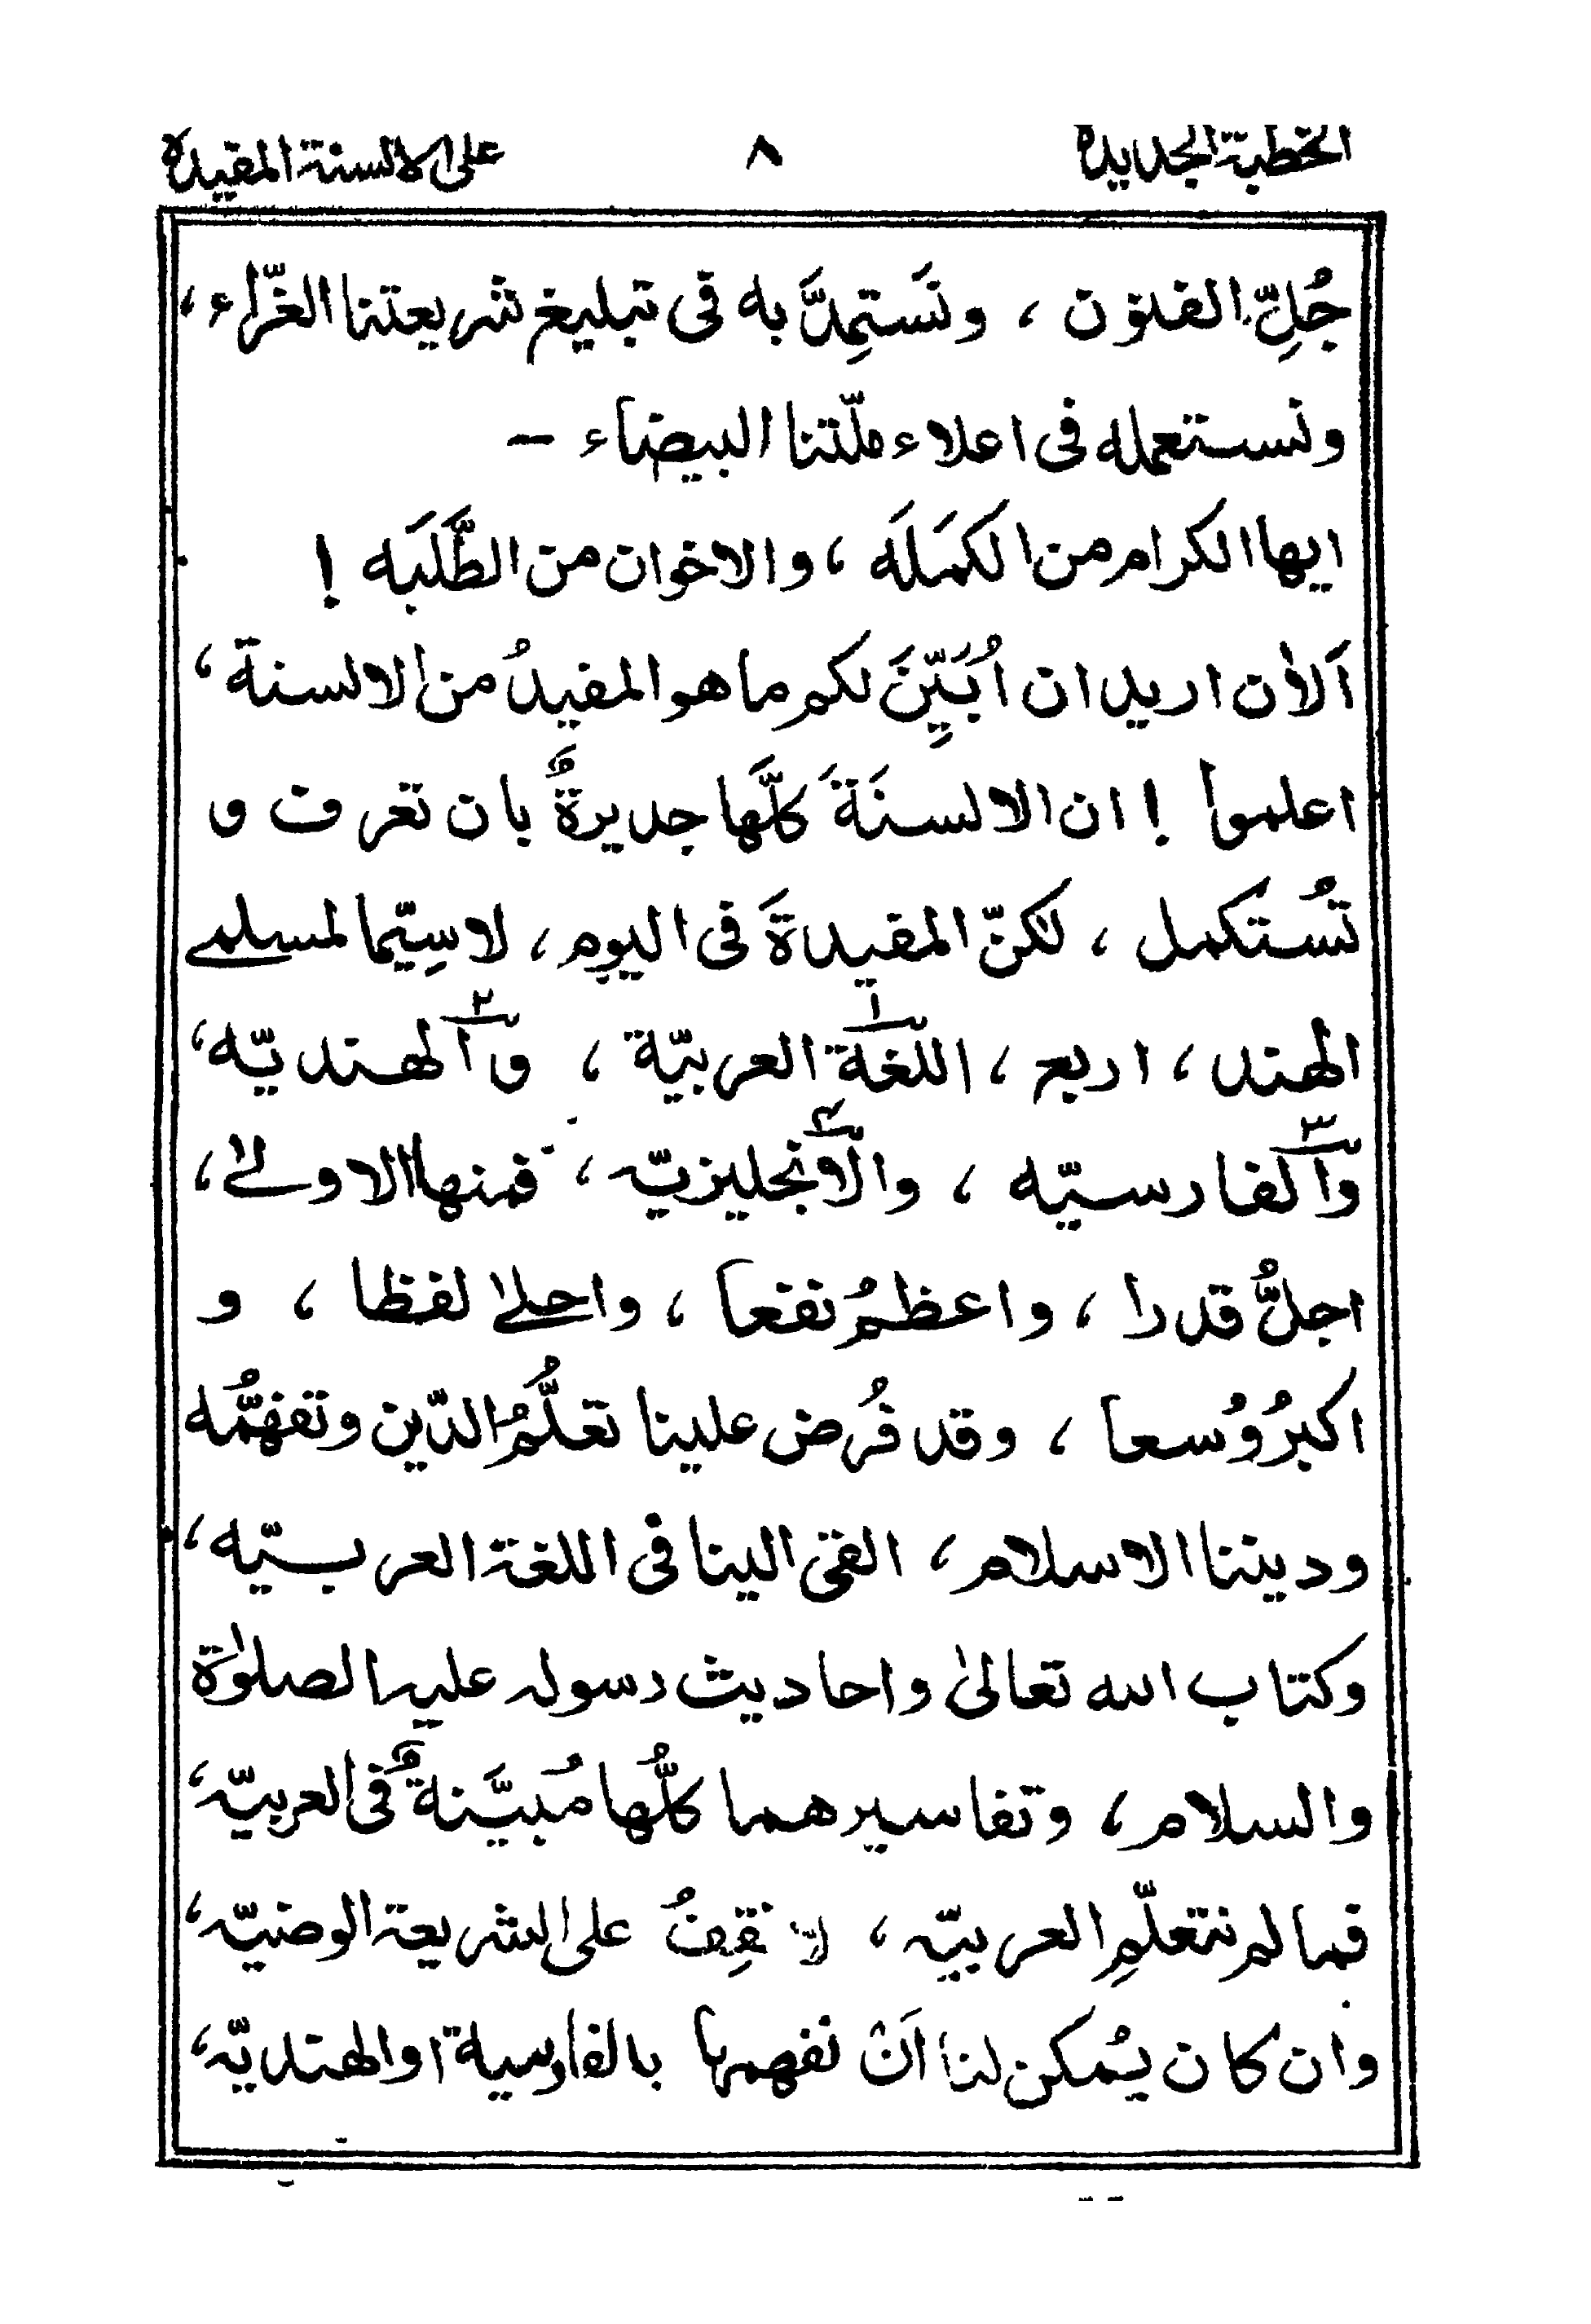 الخطبة الجديدة ٨ على الالسنة المفيدة
جُلِّ الفنون ، ونَستمِدَّ به فى تبليغ شريعتنا الغرّاء ،
ونستعمله فى اعلاء ملّتنا البيضاء –
ايها الكرام من الكمَلَه ، والاخوان من الطَّلَبَه !
اَلاٰن اريد ان اُبَيِّنَ لكم ما هو المفيدُ من الالسنة ،
اعلموا ! ان الالسنَةَ كلَّها جديرةٌ بان تعرف و
تُستكمل ، لٰكنّ المفيدةَ فى اليوم ، لاسِيّما لمسلمے
الهند ، اربع ، اللغة ١ العربيّة ، وا٢لهنديّه ،
وا٣لفارسيّه ، والا٤نجليزيّه ، فمنها الاولےٰ ،
اجلُّ قدرا ، واعظمُ نفعا ، واحلےٰ لفظا ، و
اكبرُ وُسعا ، وقد فُرض علينا تعلُّمُ الدّين وتفهُّمُه
وديننا الاسلام ، القى الينا فى اللغة العربيّه ،
وكتاب الله تعالىٰ واحاديث رسوله عليه الصلوٰة
والسلام ، وتفاسيرهما كلُّها مُبيَّنةٌ فى العربيّه ،
فما لم نتعلّمِ العربيّه ، لا نَقِفُ على الشريعة الوضيّه ،
وان كان يُمكن لنا اَنْ نفهمها بالفارسية او الهنديّه ،